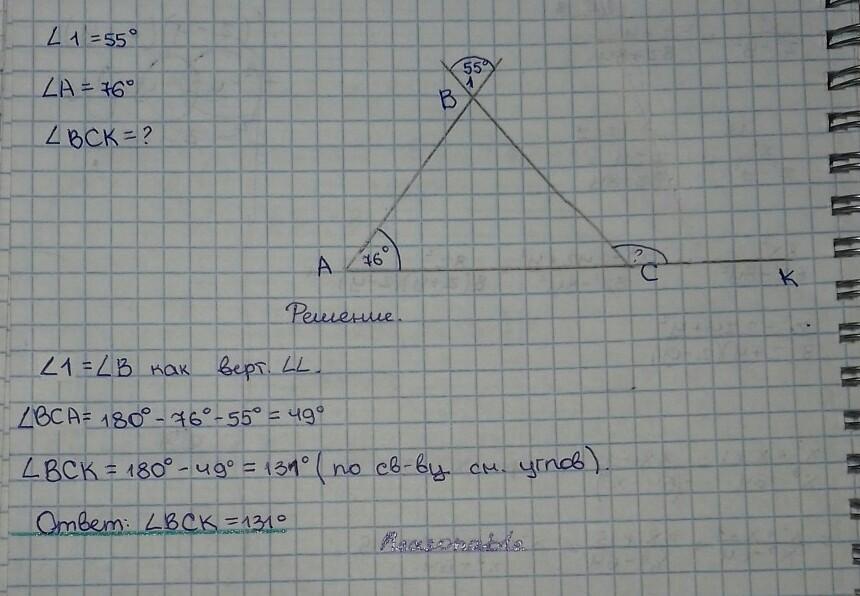 ∠1=55°
∠A=76°
∠BCK=?
55°
1
B
A
76°
?
C
K
Решение.
∠1=∠B как верт. ∠∠.
∠BCA=180°-76°-55°=49°
∠BCK=180°-49°=131° (по св-ву см. углов).
Ответ: ∠BCK=131°